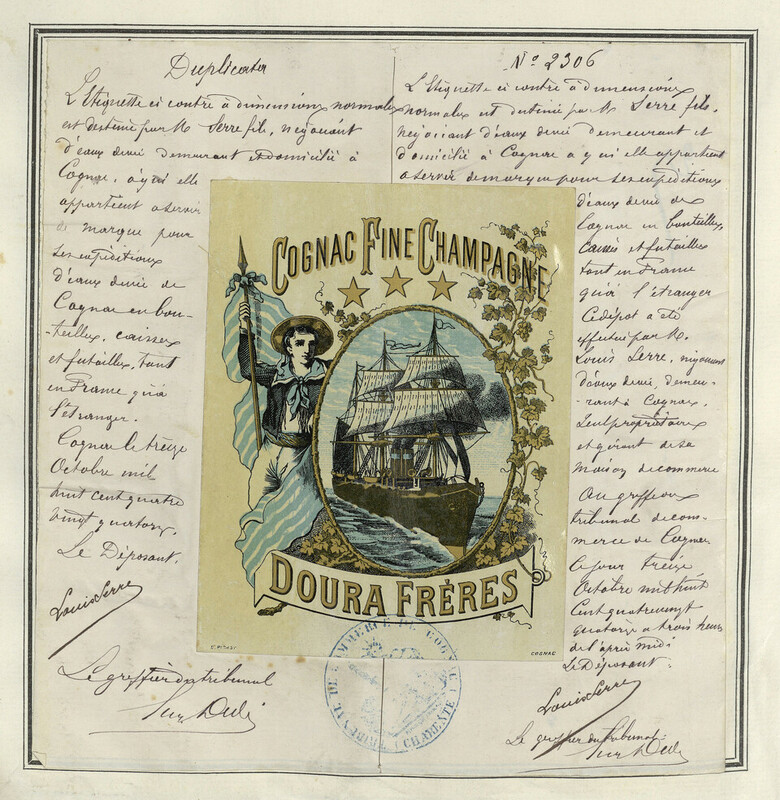 Duplicata
L'Etiquette ci contre à dimensions normales
est destinée par M Serre fils, négociant
d'eaux de vie demeurant et domicilié à
Cognac, à qui elle
appartient a servir
de marque pour
ses expéditions
d'eaux de vie de
Cognac en bou-
teilles, caisses
et futailles, tant
en France qu'à
l'étranger.
Cognac le treize
Octobre mil
huit cent quatre
vingt quatorze.
Le Déposant.
Louis Serre
Le greffier du tribunal
No 2306
L'Etiquette ci contre à dimensions
normales est destinée par M. Serre fils,
négociant d'eaux de vie demeurant et
domicilié à Cognac à qui elle appartient
a servir de marque pour ses expéditions
d'eaux de vie de
Cognac en bouteilles,
caisses et futailles
tant en France
qu'à l'étranger
Ce dépôt a été
effectué par M.
Louis Serre, négociant
d'eaux de vie, demeu-
rant à Cognac,
seul propriétaire
et gérant de sa
maison de commerce
Au greffe du
tribunal de com-
merce de Cognac
ce jour treize
Octobre mil huit
cent quatre vingt
quatorze à trois heures
de l'après midi
Le Déposant.
Louis Serre
Le greffier du tribunal.
COGNAC FINE CHAMPAGNE
DOURA FRÈRES
COGNAC
TRIBUNAL DE COMMERCE DE COGNAC
(CHARENTE)